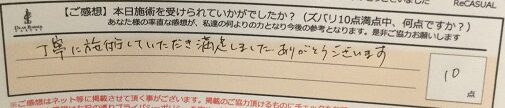 ReCASUAL
【ご感想】本日施術を受けられていかがでしたか？（ズバリ10点満点中、何点ですか？）
あなた様の率直な感想が、私達の何よりの力となり今後の参考となります。是非ご協力お願いします
丁寧に施術していただき満足しました ありがとうございます
10
点
※ご感想はネット等に掲載させて頂く事がございます。掲載のご協力頂ける